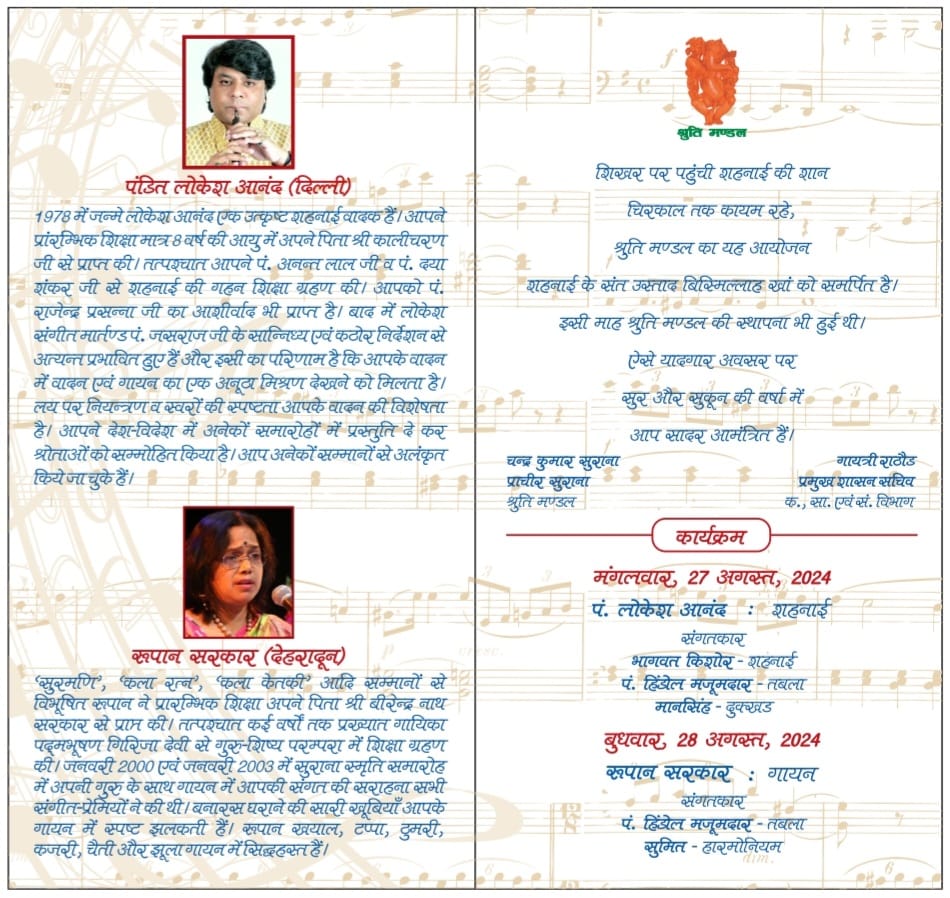 पंडित लोकेश आनंद (दिल्ली)
1978 में जन्मे लोकेश आनंद एक उत्कृष्ट शहनाई वादक हैं। आपने
प्रांरम्भिक शिक्षा मात्र 8 वर्ष की आयु में अपने पिता श्री कालीचरण
जी से प्राप्त की। तत्पश्चात आपने पं. अनन्त लाल जी व पं. दया
शंकर जी से शहनाई की गहन शिक्षा ग्रहण की। आपको पं.
राजेन्द्र प्रसन्ना जी का आशीर्वाद भी प्राप्त है। बाद में लोकेश
संगीत मार्तण्ड पं. जसराज जी के सान्निध्य एवं कठोर निर्देशन से
अत्यन्त प्रभावित हुए हैं और इसी का परिणाम है कि आपके वादन
में वादन एवं गायन का एक अनूठा मिश्रण देखने को मिलता है।
लय पर नियन्त्रण व स्वरों की स्पष्टता आपके वादन की विशेषता
है। आपने देश-विदेश में अनेकों समारोहों में प्रस्तुति दे कर
श्रोताओं को सम्मोहित किया है। आप अनेकों सम्मानों से अलंकृत
किये जा चुके हैं।
रूपान सरकार (देहरादून)
‘सुरमणि’, ‘कला रत्न’, ‘कला केतकी’ आदि सम्मानों से
विभूषित रूपान ने प्रारम्भिक शिक्षा अपने पिता श्री बीरेन्द्र नाथ
सरकार से प्राप्त की। तत्पश्चात कई वर्षों तक प्रख्यात गायिका
पद्मभूषण गिरिजा देवी से गुरु-शिष्य परम्परा में शिक्षा ग्रहण
की। जनवरी 2000 एवं जनवरी 2003 में सुराना स्मृति समारोह
में अपनी गुरु के साथ गायन में आपकी संगत की सराहना सभी
संगीत-प्रेमियों ने की थी। बनारस घराने की सारी खूबियाँ आपके
गायन में स्पष्ट झलकती हैं। रूपान खयाल, टप्पा, ठुमरी,
कजरी, चैती और झूला गायन में सिद्धहस्त हैं।
श्रुति मण्डल
शिखर पर पहुंची शहनाई की शान
चिरकाल तक कायम रहे,
श्रुति मण्डल का यह आयोजन
शहनाई के संत उस्ताद बिस्मिल्लाह खां को समर्पित है।
इसी माह श्रुति मण्डल की स्थापना भी हुई थी।
ऐसे यादगार अवसर पर
सुर और सुकून की वर्षा में
आप सादर आमंत्रित हैं।
चन्द्र कुमार सुराना
प्राचीर सुराना
श्रुति मण्डल
गायत्री राठौड
प्रमुख शासन सचिव
क., सा. एवं सं. विभाग
कार्यक्रम
मंगलवार, 27 अगस्त, 2024
पं. लोकेश आनंद : शहनाई
संगतकार
भागवत किशोर - शहनाई
पं. हिंडोल मजूमदार - तबला
मानसिंह - दुक्खड
बुधवार, 28 अगस्त, 2024
रूपान सरकार : गायन
संगतकार
पं. हिंडोल मजूमदार - तबला
सुमित - हारमोनियम